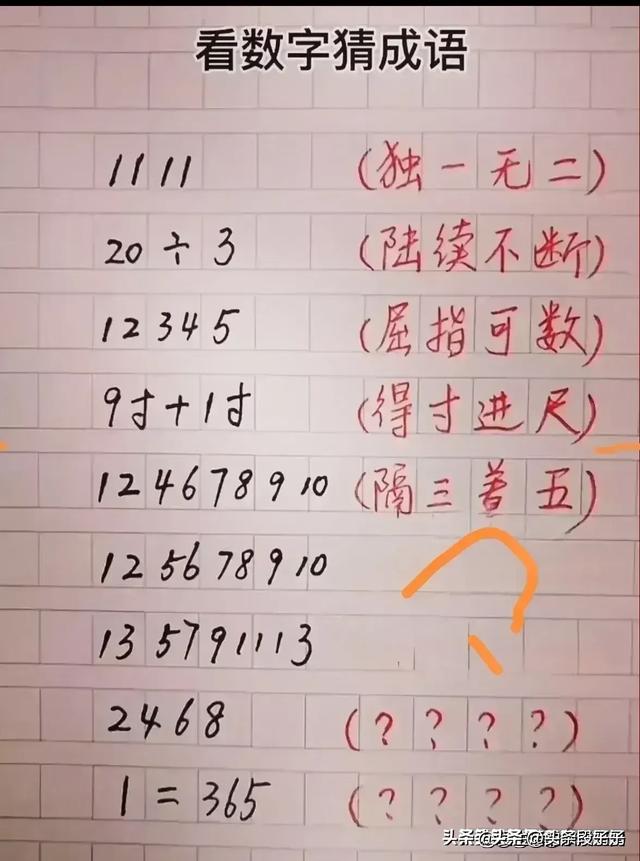 看数字猜成语
1111 (独一无二)
20÷3 (陆续不断)
12345 (屈指可数)
9寸+1寸 (得寸进尺)
124678910 (隔三差五)
125678910
135791113
2468 (????)
1=365 (????)